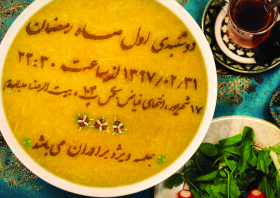 دوشنبه‌ی اول ماه رمضان
۱۳۹۷/۰۲/۳۱ از ساعت ۲۲:۳۰
۱۷ شهریور، انتهای فیاض بخش، پ ۱۰۳، بیت الرضا علیه‌السلام
جلسه ویژه برادران می باشد